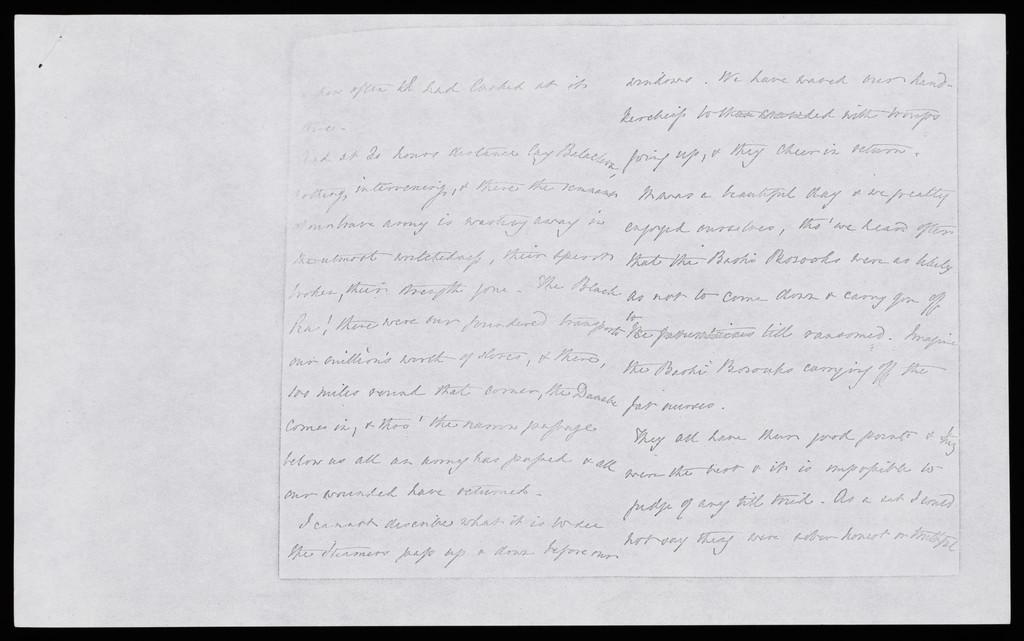 how often I had looked at its
at 20 hours distance lay Balaclava
nothing intervening, & there the remains
of our brave army is wasting away in
the utmost wretchedness, their spirits
broken, their strength gone. The Black
Sea! there were our foundered transports
our million's worth of stores, & there,
100 miles round that corner, the Danube
comes in, & tho' the narrow passage
below us all an army has passed & all
our wounded have returned.
I cannot describe what it is to see
the steamers pass up & down before our
windows. We have waved our hand-
kerchiefs to them crowded with troops
going up, & they cheer in return.
It was a beautiful day & we greatly
enjoyed ourselves, tho' we heard often
that the Bashi Bosouks were as likely
as not to come down & carry you off
to the till ransomed. Imagine
the Bashi Bosouks carrying off the
fat nurses.
They all have their good points &
were the best & it is impossible to
judge of any till tried. As a set I would
not say they were sober honest or truthful